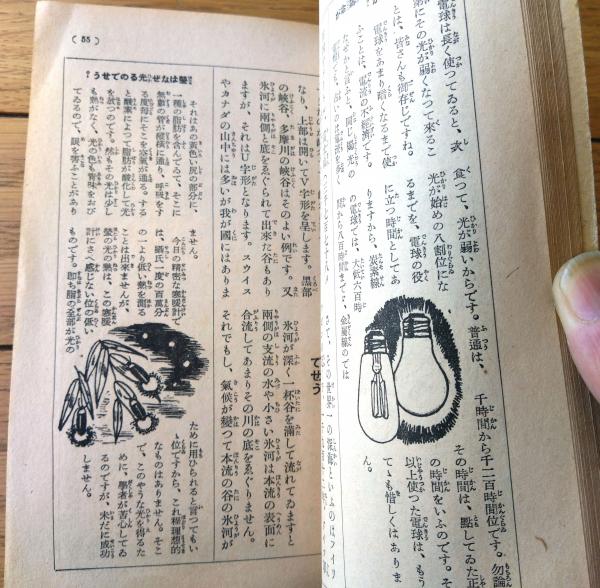 電球は長く使つてゐると、次
第にその光が弱くなつて來るこ
とは、皆さんも御存じですね。
電球をあまり暗くなるまで使
ふことは、電流の不經濟です。
食つて、光が弱いからです。普通は、
光が始めの八割位にな
るまでを、電球の役
に立つ時間としてあ
りますから、炭素線
の電球では、大低六百時
間から八百時間まで、金屬線のでは
千時間から千二百時間位です。勿論
その時間は、點してゐた正味
の時間をいふのです。そ
以上使つた電球は、もう
てゝも惜しくはありませ
ん。
( 55 )
なり、上部は開いてV字形を呈します。黑部
の峽谷、多摩川の峽谷はそのよい例です。又
氷河に兩側と底をゑぐられて出來た谷もあり
ますが、それはU字形となります。スウイス
やカナダの山中には多いが我が國にはありま
せう
氷河が深く一杯谷を滿して流れてゐますと
兩側の支流の水や小さい氷河は本流の表面に
合流してあまりその川の底をゑぐりません。
それでもし、氣候が變つて本流の谷の氷河が
螢はなぜ光るのでせう？
それはあの黄色い尻の部分に、
一種の脂肪を含んでゐて、そこに
無數の管が縱橫に通り、呼吸をす
る度每にそこを空氣が通る。する
と酸素によつて脂肪が酸化して光
を放つのです。然もその光は少し
も熱がなく、光の色も靑味をおび
てゐるので、誤を呼ぶことがあり
ません。
今日の精密な寒暖計で
は、攝氏一度の百萬分
の一より低い熱を測る
ことは出來ませんが、
螢の光の熱は、この寒暖
計にさへ感じない位の低い
ものです。卽ち脂の全部が光の
ために用ひられると言つてもい
ゝ位ですから、これ程理想的
なものはありません。そこ
で、このやうな光を得るた
めに、學者が苦心してゐ
るのですが、未だに成功
しません。